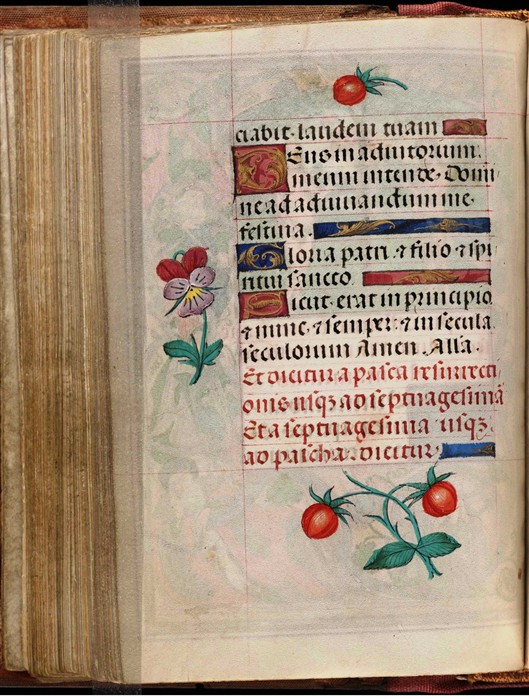 ciabit·laudem tuam
Deus in adiutorium
meum intende. Domi
ne ad adiuuandum me
festina.
Gloria patri. ⁊ filio ⁊ spi
ritui sancto.
Sicut erat in principio
⁊ nunc ⁊ semper: ⁊ in secula
seculorum Amen. Alla.
Et dicitur a pasca resurrecti
onis usqꝫ ad septuagesimā
Et a septuagesima usqꝫ
ad pascha: dicitur